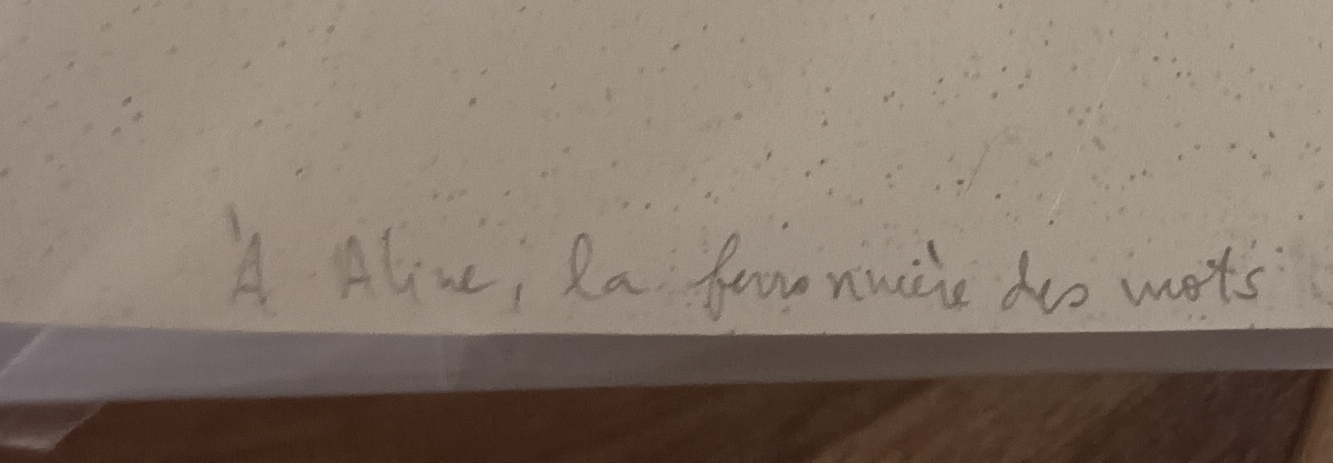 À Aline, la ferronnière des mots